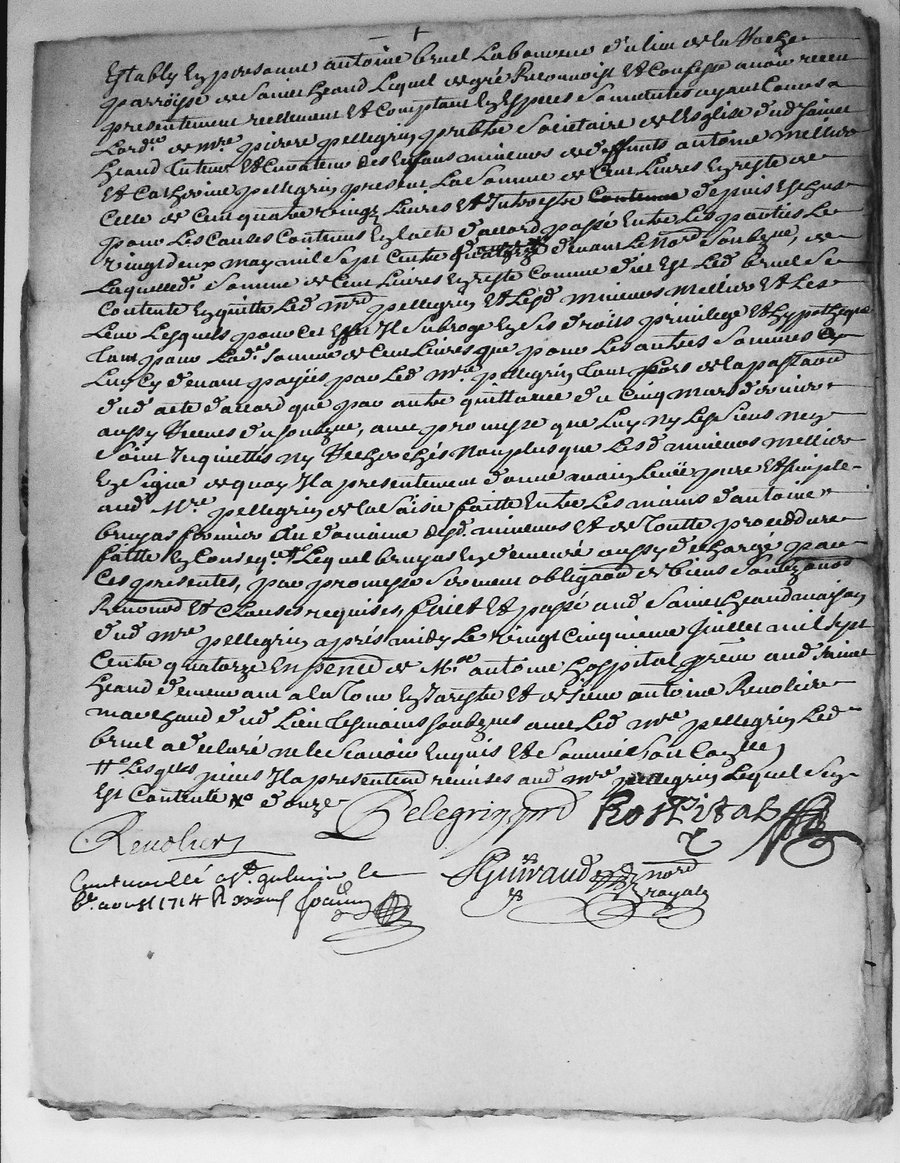 Estably en personne antoine bruel Laboureur du lieu de la Roche
parroisse de Saint heand Lequel de gré Reconnoist et Confesse avoir receu
presentement reellement et Comptant en Especes Sonnantes ayant Cours a
Lord.ce de mre pierre pellegrin prebtre Societaire de l'Esglise dud. Saint
heand Tuteur et Curateur des Enfans mineurs de deffunts antoine mellier
et Catherine pellegrin present La Somme de Cent Livres En reste de
Celle de Cent quatre vingt Livres et Interests depuis Eschus
pour Les Causes Contenus En l'acte d'accord passé Entre Les parties Le
vingt deux may mil Sept Cents devant Le Nore Soubzne, de
Laquelle d. Somme de Cent Livres En reste Comme dit Est Led bruel Se
Contente En quitte Led mre pellegrin et Lesd mineurs mellier et Les
Leur Lesquels pour Cet Effet Il Subroge En Ses droits privilege et hyppotheque
tant pour Lad. Somme de Cent Livres que pour Les autres Sommes a
Luy Cy devant payés par Led. mre pellegrin tant Lors de la passaon
dud acte d'accord que par autre quittance du Cinq mars dernier
aussy Receues du Soubzne, avec promesse que Luy ny Les Siens ney
Seront Inquiettés ny Recherchés Non plus que Lesd mineurs mellier
En Signe de quoy Il a presentement donné main Levée pure et Simple
aud Mre pellegrin de la Saisie faitte Entre Les mains d'antoine
bruyas fermier du domaine desd. mineurs et de Toutte procedure
faitte En Conseqce Lequel bruyas En demeure aussy dechargé par
Ces presentes, par promesse Serment obligaon de biens Soubzmaons
Renonaons et Clauses requises, faict et passé aud Saint heand maison
dud mre pellegrin aprés midy Le vingt Cinquieme Juillet mil Sept
Cents quatorze En pnce de Mre antoine hospital aud Saint
heand demeurant a la Tour En Jarestie et de Sieur antoine Revolier
marchand dud Lieu tesmoins Soubznes avec Led mre pellegrin Led
bruel a declaré ne le Scavoir Enquis et de Sommé Soit Con.llé
Lesqlles pieces Il a presentemt remises aud mre pellegrin Lequel Sen
Est Contente d'onze
Pelegrin prd Hospital
Revolier
Guiraud nore royal
Controllé a St galmier le
6e aoust 1714 R